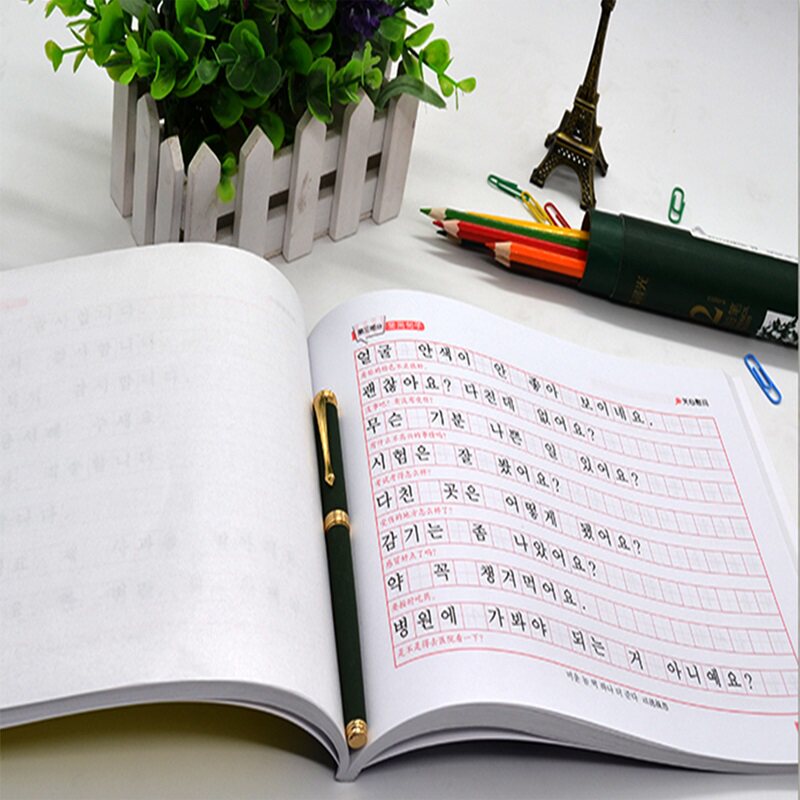 第三部分 常用句子
关心慰问
얼굴 안색이 안 좋아 보이네요.
你的脸色不太好。
괜찮아요? 다친데 없어요?
没事吧? 有没有受伤?
무슨 기분 나쁜 일 있어요?
有什么不高兴的事情吗?
시험은 잘 봤어요?
考试考得怎么样?
다친 곳은 어떻게 됐어요?
受伤的地方怎么样了?
감기는 좀 나았어요?
感冒好点了吗?
약 꼭 챙겨먹어요.
要按时吃药。
병원에 가봐야 되는 거 아니예요?
是不是得去医院看一下?
미운 놈 떡 하나 더 준다
2